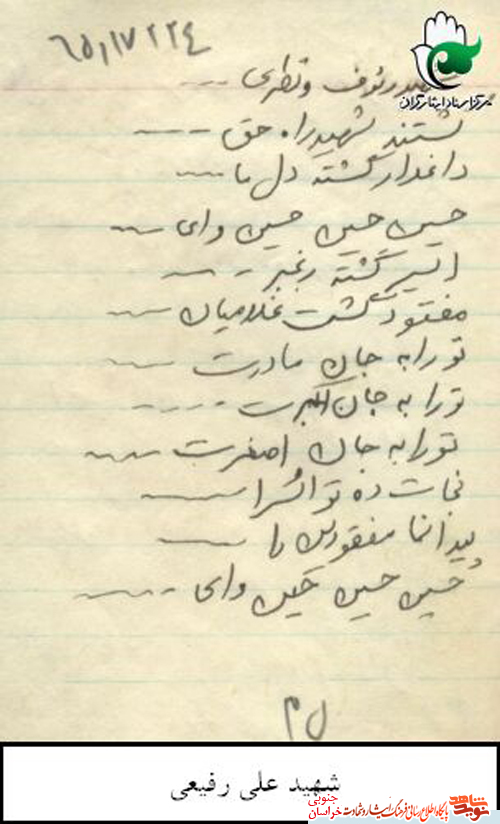 شهید رئوف و نظری
گشتند شهید راه حق
داغدار گشته دل ما
حسین حسین حسین وای
اسیر گشته رنجبر
مفقود گشت غلامیان
تو را به جان مادرت
تو را به جان اکبرت
تو را به جان اصغرت
نجات ده تو اسرا
پیدا نما مفقودین را
حسین حسین حسین وای
مرکز اسناد ایثارگران
شهید علی رفیعی
نوید شاهد
پایگاه اطلاع رسانی فرهنگ ایثار و شهادت
خراسان جنوبی